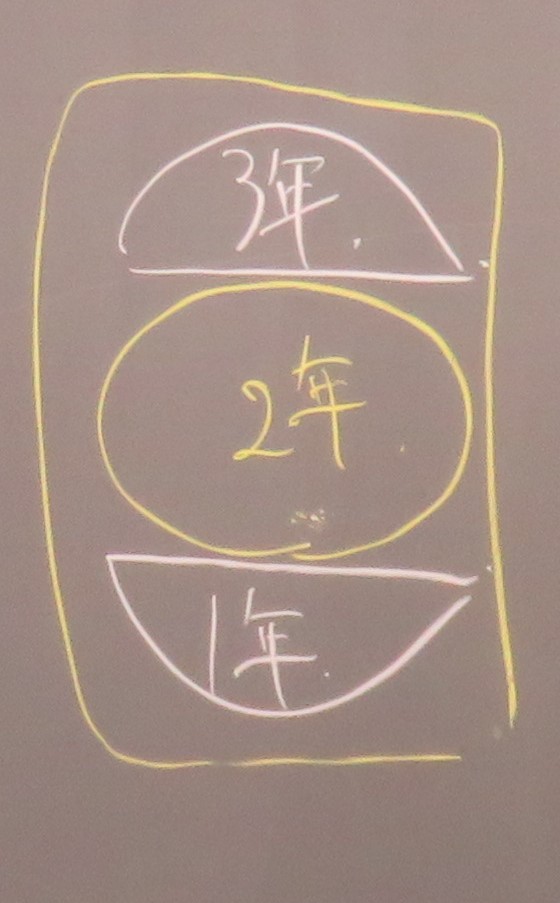 3年.
2年.
1年.